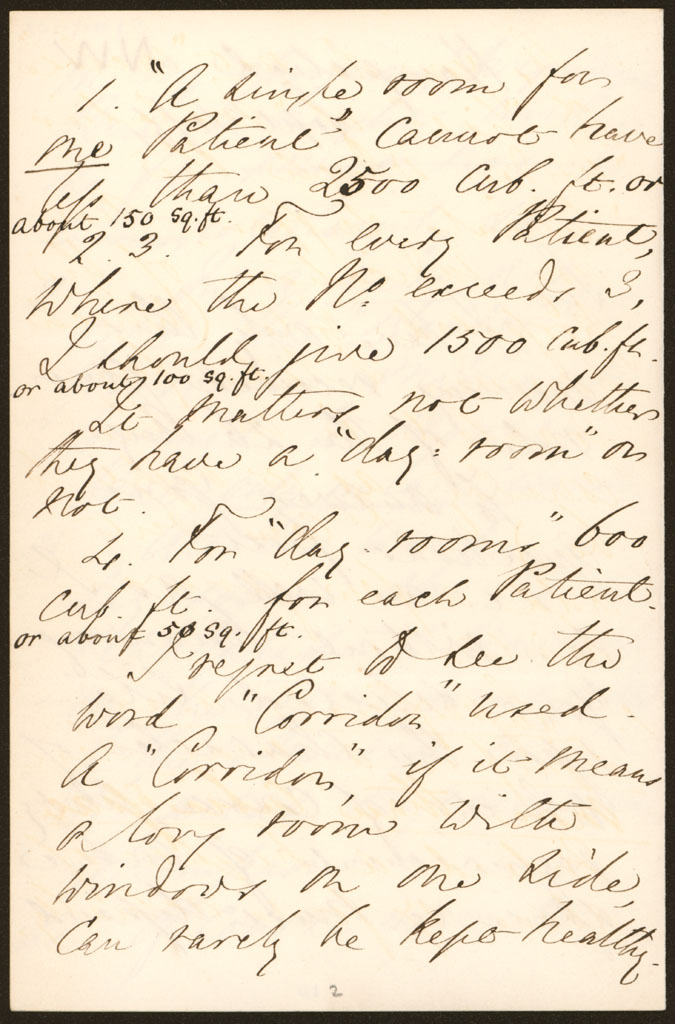 1. "A single room for
one Patient" cannot have
less than 2500 cub. ft. or
about 150 sq. ft.
2. 3. For every Patient,
where the No. exceeds 3,
I should give 1500 cub. ft.
or about 100 sq. ft.
It matters not whether
they have a "day-room" or
not.
4. For "day-rooms" 600
cub. ft. for each Patient.
or about 50 sq. ft.
I regret to see the
word "Corridor" used.
A "Corridor", if it means
a long room with
windows on one side,
can rarely be kept healthy.
2